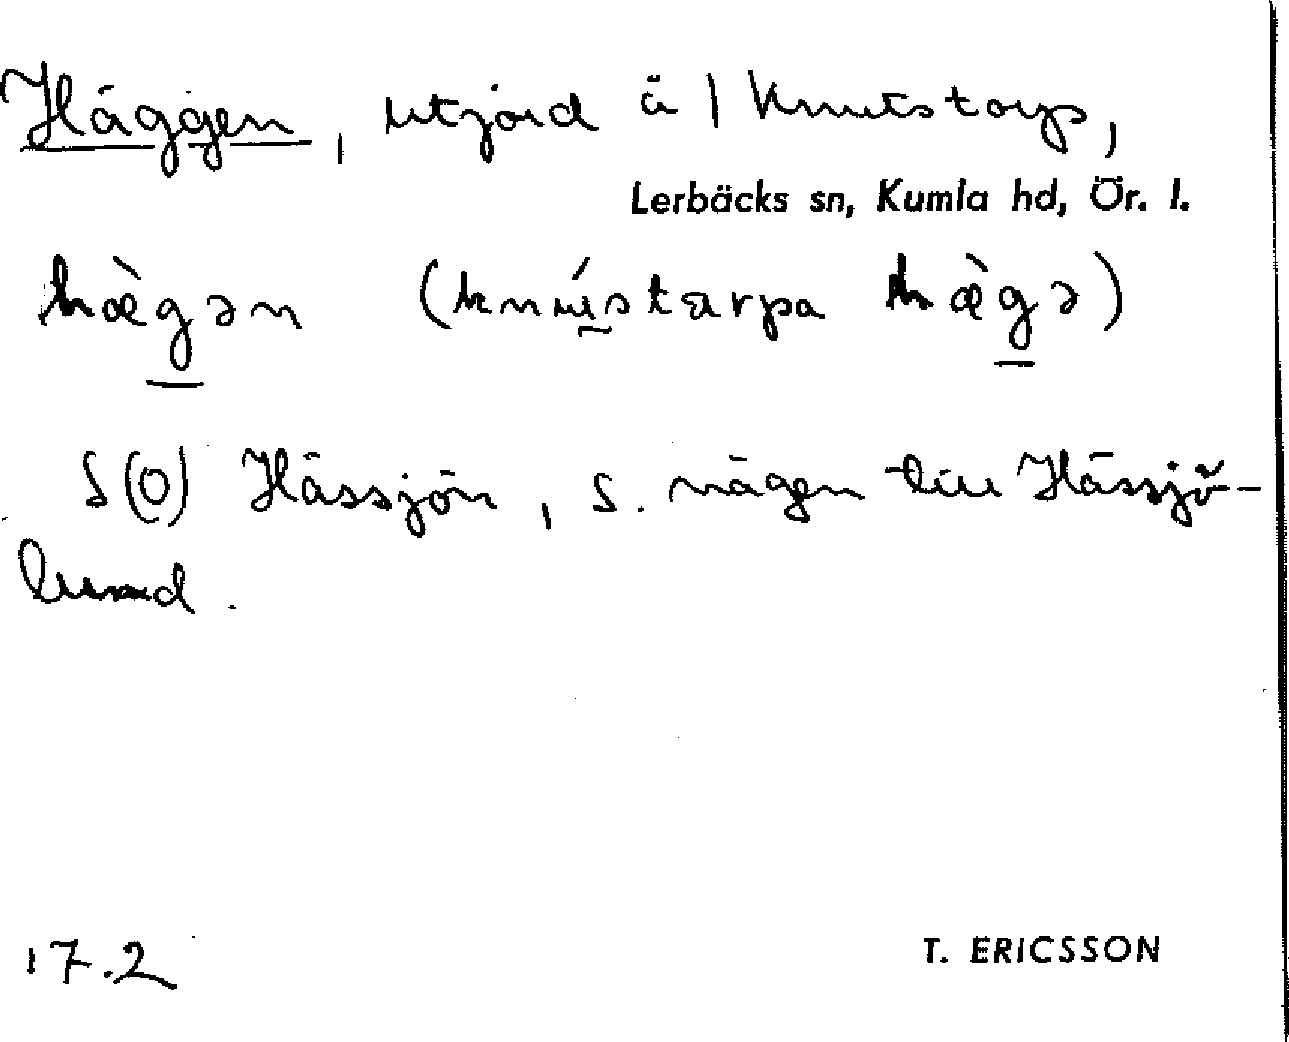 Häggen, utjord å 1 Knutstorp,
Lerbäcks sn, Kumla hd, Ör. l.
hæ̀gən (knústarpa hæ̀gə)
S(O) Hässjön, S. vägen till Hässjö-
lund.
17.2
T. ERICSSON